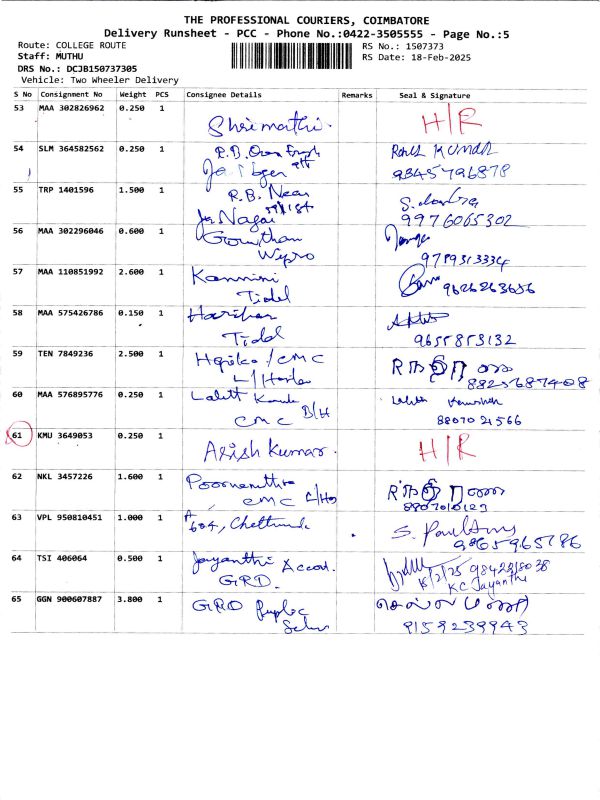 THE PROFESSIONAL COURIERS, COIMBATORE
Delivery Runsheet - PCC - Phone No.:0422-3505555 - Page No.:5
Route: COLLEGE ROUTE
RS No.: 1507373
Staff: MUTHU
RS Date: 18-Feb-2025
DRS No.: DCJB150737305
Vehicle: Two Wheeler Delivery
S No Consignment No Weight PCS Consignee Details Remarks Seal & Signature
53 MAA 302826962 0.250 1 Shrimathi. H/R
54 SLM 364582562 0.250 1 R.B. KUMAR
9345796878
55 TRP 1401596 1.500 1 R.B. Near
Nagai 9976065302
56 MAA 302296046 0.600 1 Gowtham
Wipro 9789313334
57 MAA 110851992 2.600 1 Kannini
Tidel 9626263656
58 MAA 575426786 0.150 1 Hariharan
Tidel 9655853132
59 TEN 7849236 2.500 1 /CMC
L/Hostel 8825687408
60 MAA 576895776 0.250 1 Lalitt
CMC B/H 8807021566
61 KMU 3649053 0.250 1 Asish Kumar. H/R
62 NKL 3457226 1.600 1 Poornemithra
CMC L/Hos 8807010123
63 VPL 950810451 1.000 1 A
604, S.
9865965786
64 TSI 406064 0.500 1 Jayanthi Accod. 18/2/25 9842218038
GRD. KC Jayanthi
65 GGN 900607887 3.800 1 GRD Public
9159239943